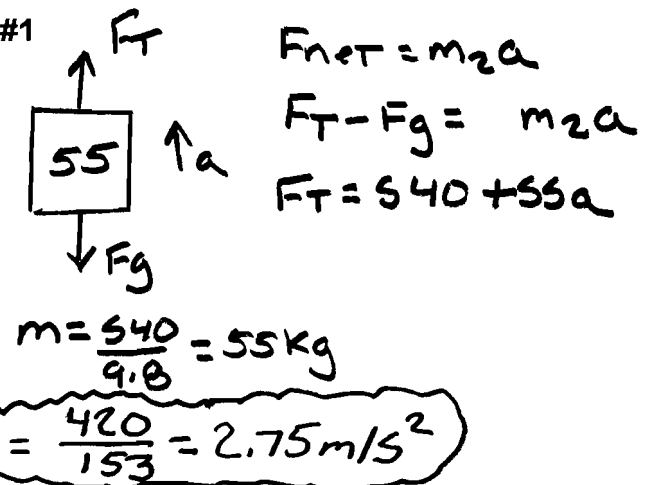 #1
F_T
Fnet = m₂a
F_T - Fg = m₂a
55
a
F_T = 540 + 55a
Fg
m = 540/9.8 = 55 kg
= 420/153 = 2.75 m/s²